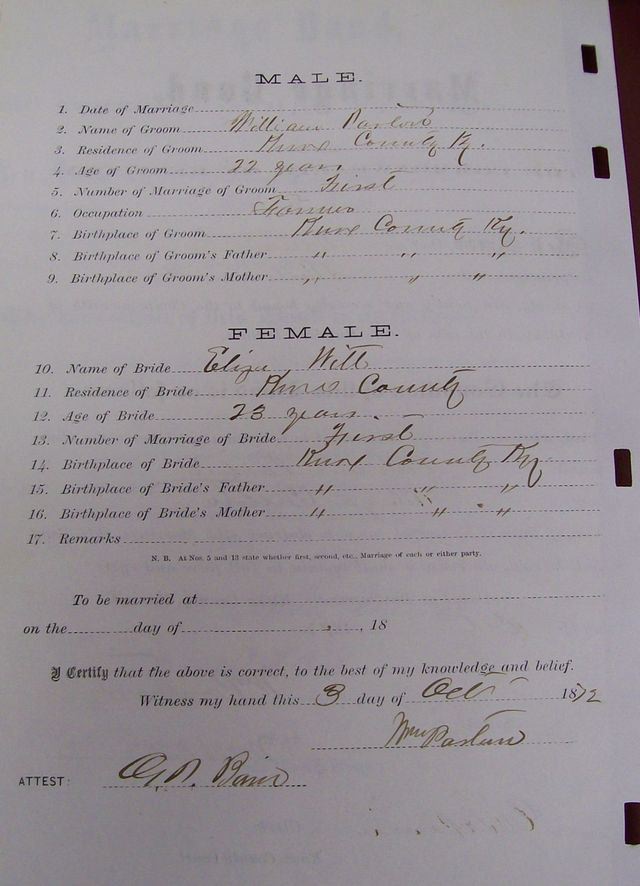 MALE.
1. Date of Marriage
2. Name of Groom William
3. Residence of Groom Knox County Ky.
4. Age of Groom 22 years
5. Number of Marriage of Groom First
6. Occupation Farmer
7. Birthplace of Groom Knox County Ky.
8. Birthplace of Groom's Father " " "
9. Birthplace of Groom's Mother " " "
FEMALE.
10. Name of Bride Eliza Witt
11. Residence of Bride Knox County
12. Age of Bride 23 years.
13. Number of Marriage of Bride First
14. Birthplace of Bride Knox County Ky
15. Birthplace of Bride's Father " " "
16. Birthplace of Bride's Mother " " "
17. Remarks
N. B. At Nos. 5 and 13 state whether first, second, etc., Marriage of each or either party.
To be married at
on the day of , 18
I Certify that the above is correct, to the best of my knowledge and belief.
Witness my hand this 3 day of Oct 1872
Wm
ATTEST: